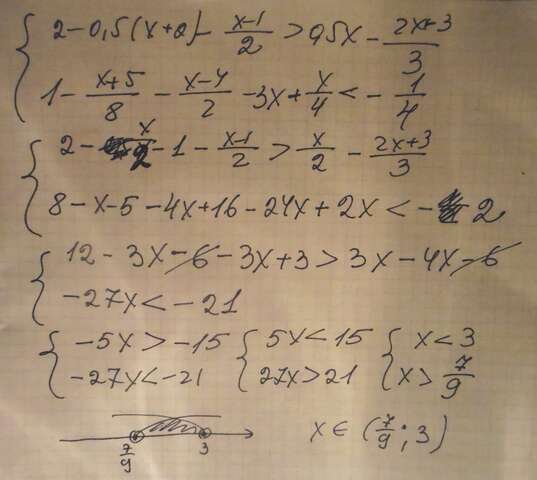 { 2-0,5(x+2)- (x-1)/2 > 0,5x - (2x+3)/3
1- (x+5)/8 - (x-4)/2 -3x+ x/4 < - 1/4
{ 2- x/2 -1 - (x-1)/2 > x/2 - (2x+3)/3
8-x-5-4x+16-24x+2x < -2
{ 12-3x-6-3x+3 > 3x-4x-6
-27x < -21
{ -5x > -15 { 5x < 15 { x < 3
-27x < -21 27x > 21 x > 7/9
7/9 3 x ∈ (7/9 ; 3)